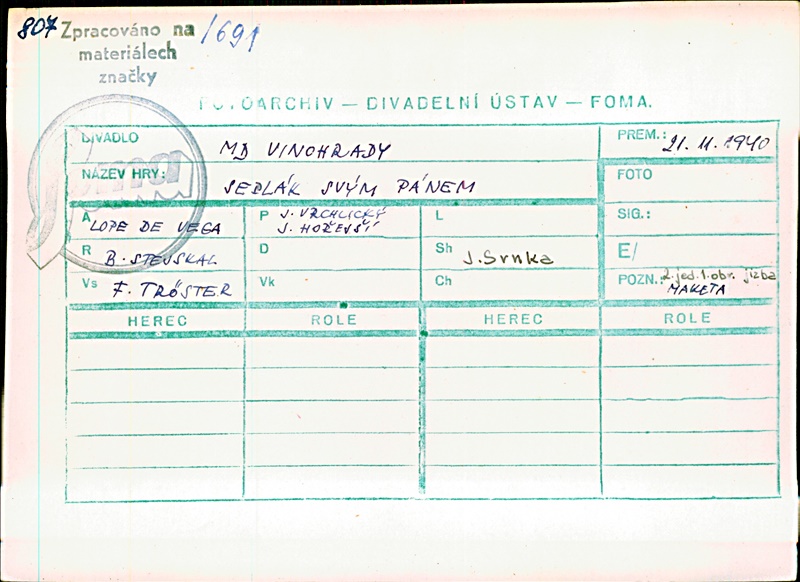 807 Zpracováno na /691
materiálech
značky
Foma
FOTOARCHIV — DIVADELNÍ ÚSTAV — FOMA.
DIVADLO MD VINOHRADY PREM.: 21. 11. 1940
NÁZEV HRY: SEDLÁK SVÝM PÁNEM FOTO
A LOPE DE VEGA P J. VRCHLICKÝ L SIG.:
J. HOŘEJŠÍ
R B. STEJSKAL D Sh J. Srnka E/
Vs F. TRÖSTER Vk Ch POZN.: 2. jed. 1. obr. jizba
MAKETA
HEREC ROLE HEREC ROLE